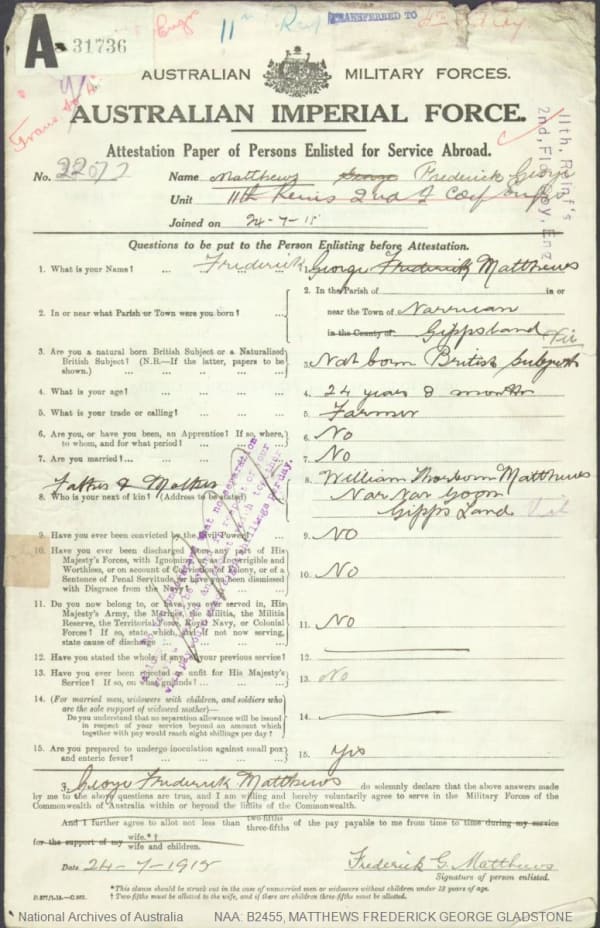 A 31736
11th Ref
TRANSFERRED TO
AUSTRALIAN MILITARY FORCES.
AUSTRALIAN IMPERIAL FORCE.
Attestation Paper of Persons Enlisted for Service Abroad.
11th, Reinf's
2nd, Fld, Coy, Eng
No. 22077 Name Matthews George Frederick George
Unit 11th Reins 2nd
Joined on 24-7-15
Questions to be put to the Person Enlisting before Attestation.
1. What is your Name? ... ... ... Frederick 1. George Frederick Matthews
2. In or near what Parish or Town were you born? ... 2. In the Parish of in or
near the Town of
in the County of Gippsland Vic
3. Are you a natural born British Subject or a Naturalised
British Subject? (N.B.—If the latter, papers to be
shown.) ... ... ... ... ... 3. Nat born British Subject
4. What is your age? ... ... ... ... 4. 24 years 8 months
5. What is your trade or calling? ... ... ... 5. Farmer
6. Are you, or have you been, an Apprentice? If so, where,
to whom, and for what period? ... ... ... 6. No
7. Are you married? ... ... ... ... 7. No
Father & Mother
8. Who is your next of kin? (Address to be stated) 8. William Matthews
Nar Nar Goon
Gipps Land Vic
9. Have you ever been convicted by the Civil Power? 9. No
10. Have you ever been discharged from any part of His
Majesty's Forces, with Ignominy, or as Incorrigible and
Worthless, or on account of Conviction of Felony, or of a
Sentence of Penal Servitude, or have you been dismissed
with Disgrace from the Navy? 10. No
11. Do you now belong to, or have you ever served in, His
Majesty's Army, the Marines, the Militia, the Militia
Reserve, the Territorial Force, Royal Navy, or Colonial
Forces? If so, state which, and if not now serving,
state cause of discharge 11. No
12. Have you stated the whole, if any, of your previous service? 12.
13. Have you ever been rejected as unfit for His Majesty's
Service? If so, on what grounds? ... ... ... 13. No
14. (For married men, widowers with children, and soldiers who
are the sole support of widowed mother)—
Do you understand that no separation allowance will be issued
in respect of your service beyond an amount which
together with pay would reach eight shillings per day? 14.
15. Are you prepared to undergo inoculation against small pox
and enteric fever? ... ... ... ... 15. Yes
I, George Frederick Matthews do solemnly declare that the above answers made
by me to the above questions are true, and I am willing and hereby voluntarily agree to serve in the Military Forces of the
Commonwealth of Australia within or beyond the limits of the Commonwealth.
And I further agree to allot not less than two-fifths three-fifths of the pay payable to me from time to time during my service
for the support of my wife.*†
wife and children.
Date 24-7-1915 Frederick G. Matthews
Signature of person enlisted.
*This clause should be struck out in the case of unmarried men or widowers without children under 18 years of age.
† Two-fifths must be allotted to the wife, and if there are children three-fifths must be allotted.
National Archives of Australia NAA: B2455, MATTHEWS FREDERICK GEORGE GLADSTONE